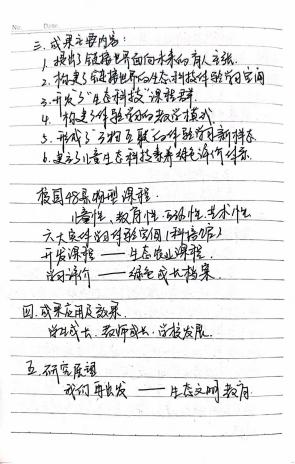 No.
Date.
三. 成果主要内容:
1. 提出了链接世界面向未来的育人主张.
2. 构建了链接世界的生态科技体验学习空间
3. 开发了"生态科技"课程群.
4. 构建了体验学习的教学模式.
5. 形成了"万物互联"的体验学习新样态.
6. 建立了儿童生态科技素养绿色评价体系.
校园48景物型课程.
儿童性. 教育性. 互动性. 艺术性
六大实体学习体验空间(科培馆)
开发课程 —— 生态农业课程.
学习评价 —— 绿色成长档案.
四. 成果应用及效果.
学生成长. 教师成长. 学校发展.
五. 研究展望
我们再出发 —— 生态文明教育.